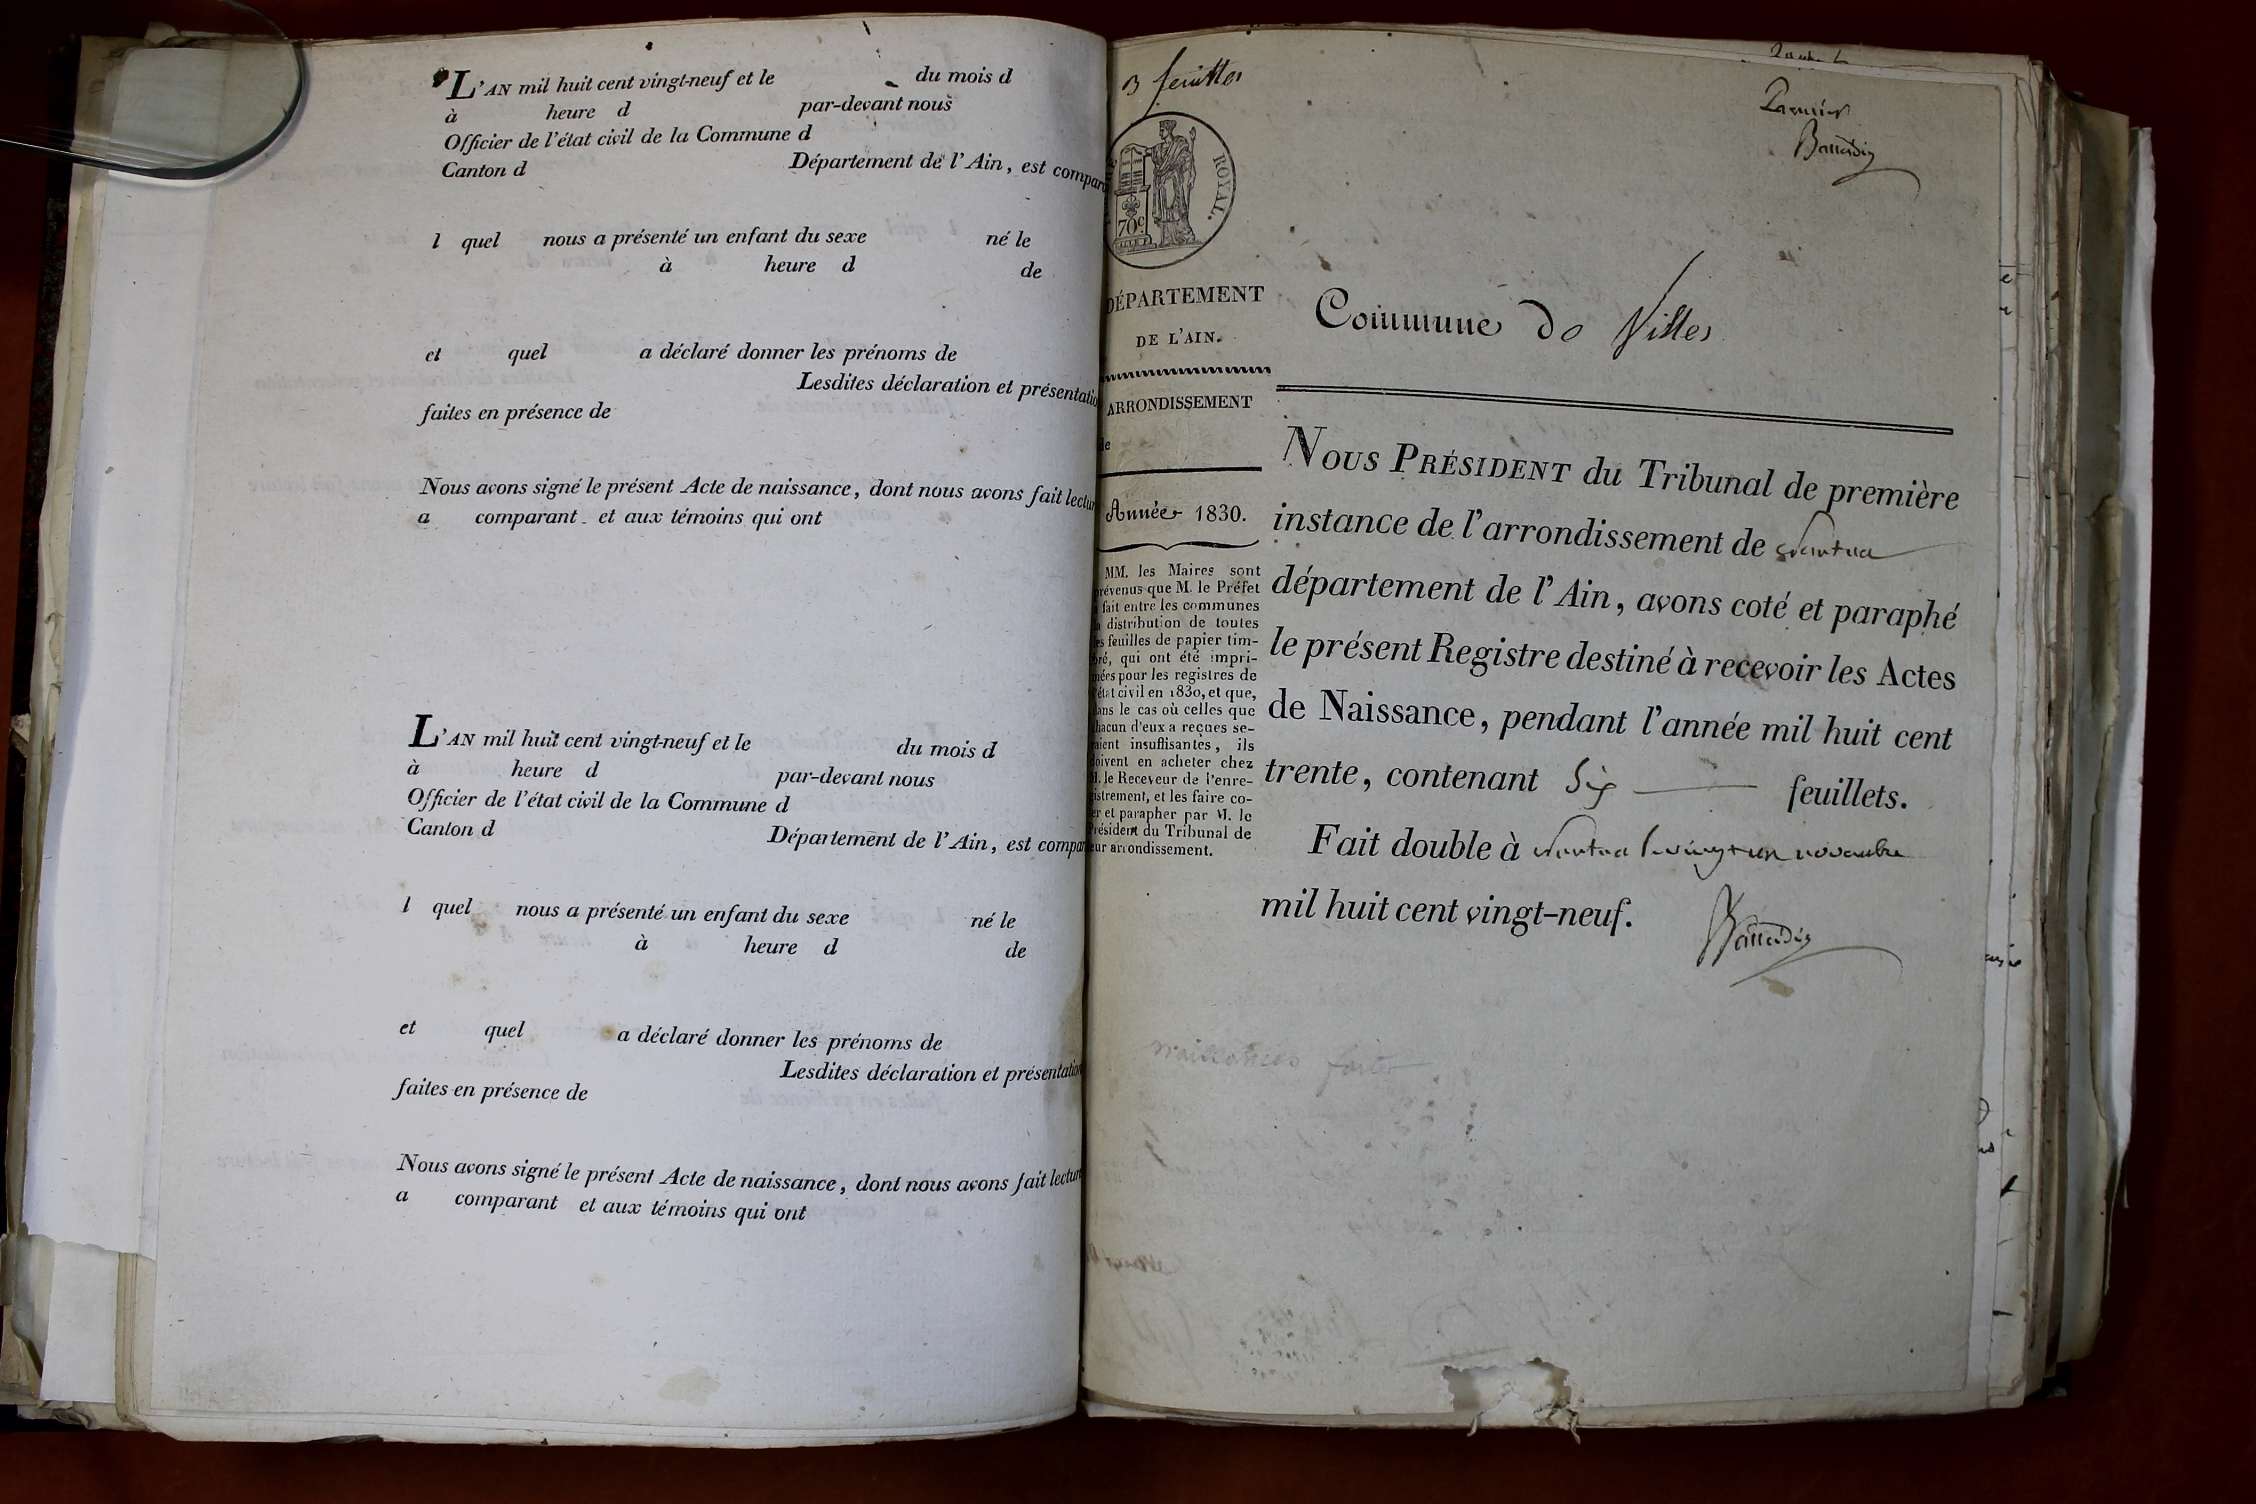 L'AN mil huit cent vingt-neuf et le du mois d
à heure d par-devant nous
Officier de l'état civil de la Commune d
Canton d Département de l'Ain, est compar
l quel nous a présenté un enfant du sexe né le
à heure d de
et quel a déclaré donner les prénoms de
Lesdites déclaration et présentatio
faites en présence de
Nous avons signé le présent Acte de naissance, dont nous avons fait lectur
a comparant et aux témoins qui ont
L'AN mil huit cent vingt-neuf et le du mois d
à heure d par-devant nous
Officier de l'état civil de la Commune d
Canton d Département de l'Ain, est compar
l quel nous a présenté un enfant du sexe né le
à heure d de
et quel a déclaré donner les prénoms de
Lesdites déclaration et présentation
faites en présence de
Nous avons signé le présent Acte de naissance, dont nous avons fait lecture
a comparant et aux témoins qui ont
3 feuilles
ROYAL.
70c
DÉPARTEMENT
DE L'AIN.
ARRONDISSEMENT
de
Année 1830.
MM. les Maires sont
prévenus que M. le Préfet
a fait entre les communes
la distribution de toutes
les feuilles de papier tim-
bré, qui ont été impri-
mées pour les registres de
l'état civil en 1830, et que,
dans le cas où celles que
chacun d'eux a reçues se-
raient insuffisantes, ils
doivent en acheter chez
M. le Receveur de l'enre-
gistrement, et les faire co-
ter et parapher par M. le
Président du Tribunal de
leur arrondissement.
Premier
Commune de Villes
NOUS PRÉSIDENT du Tribunal de première
instance de l'arrondissement de Nantua
département de l'Ain, avons coté et paraphé
le présent Registre destiné à recevoir les Actes
de Naissance, pendant l'année mil huit cent
trente, contenant Six feuillets.
Fait double à Nantua le vingt un novembre
mil huit cent vingt-neuf.